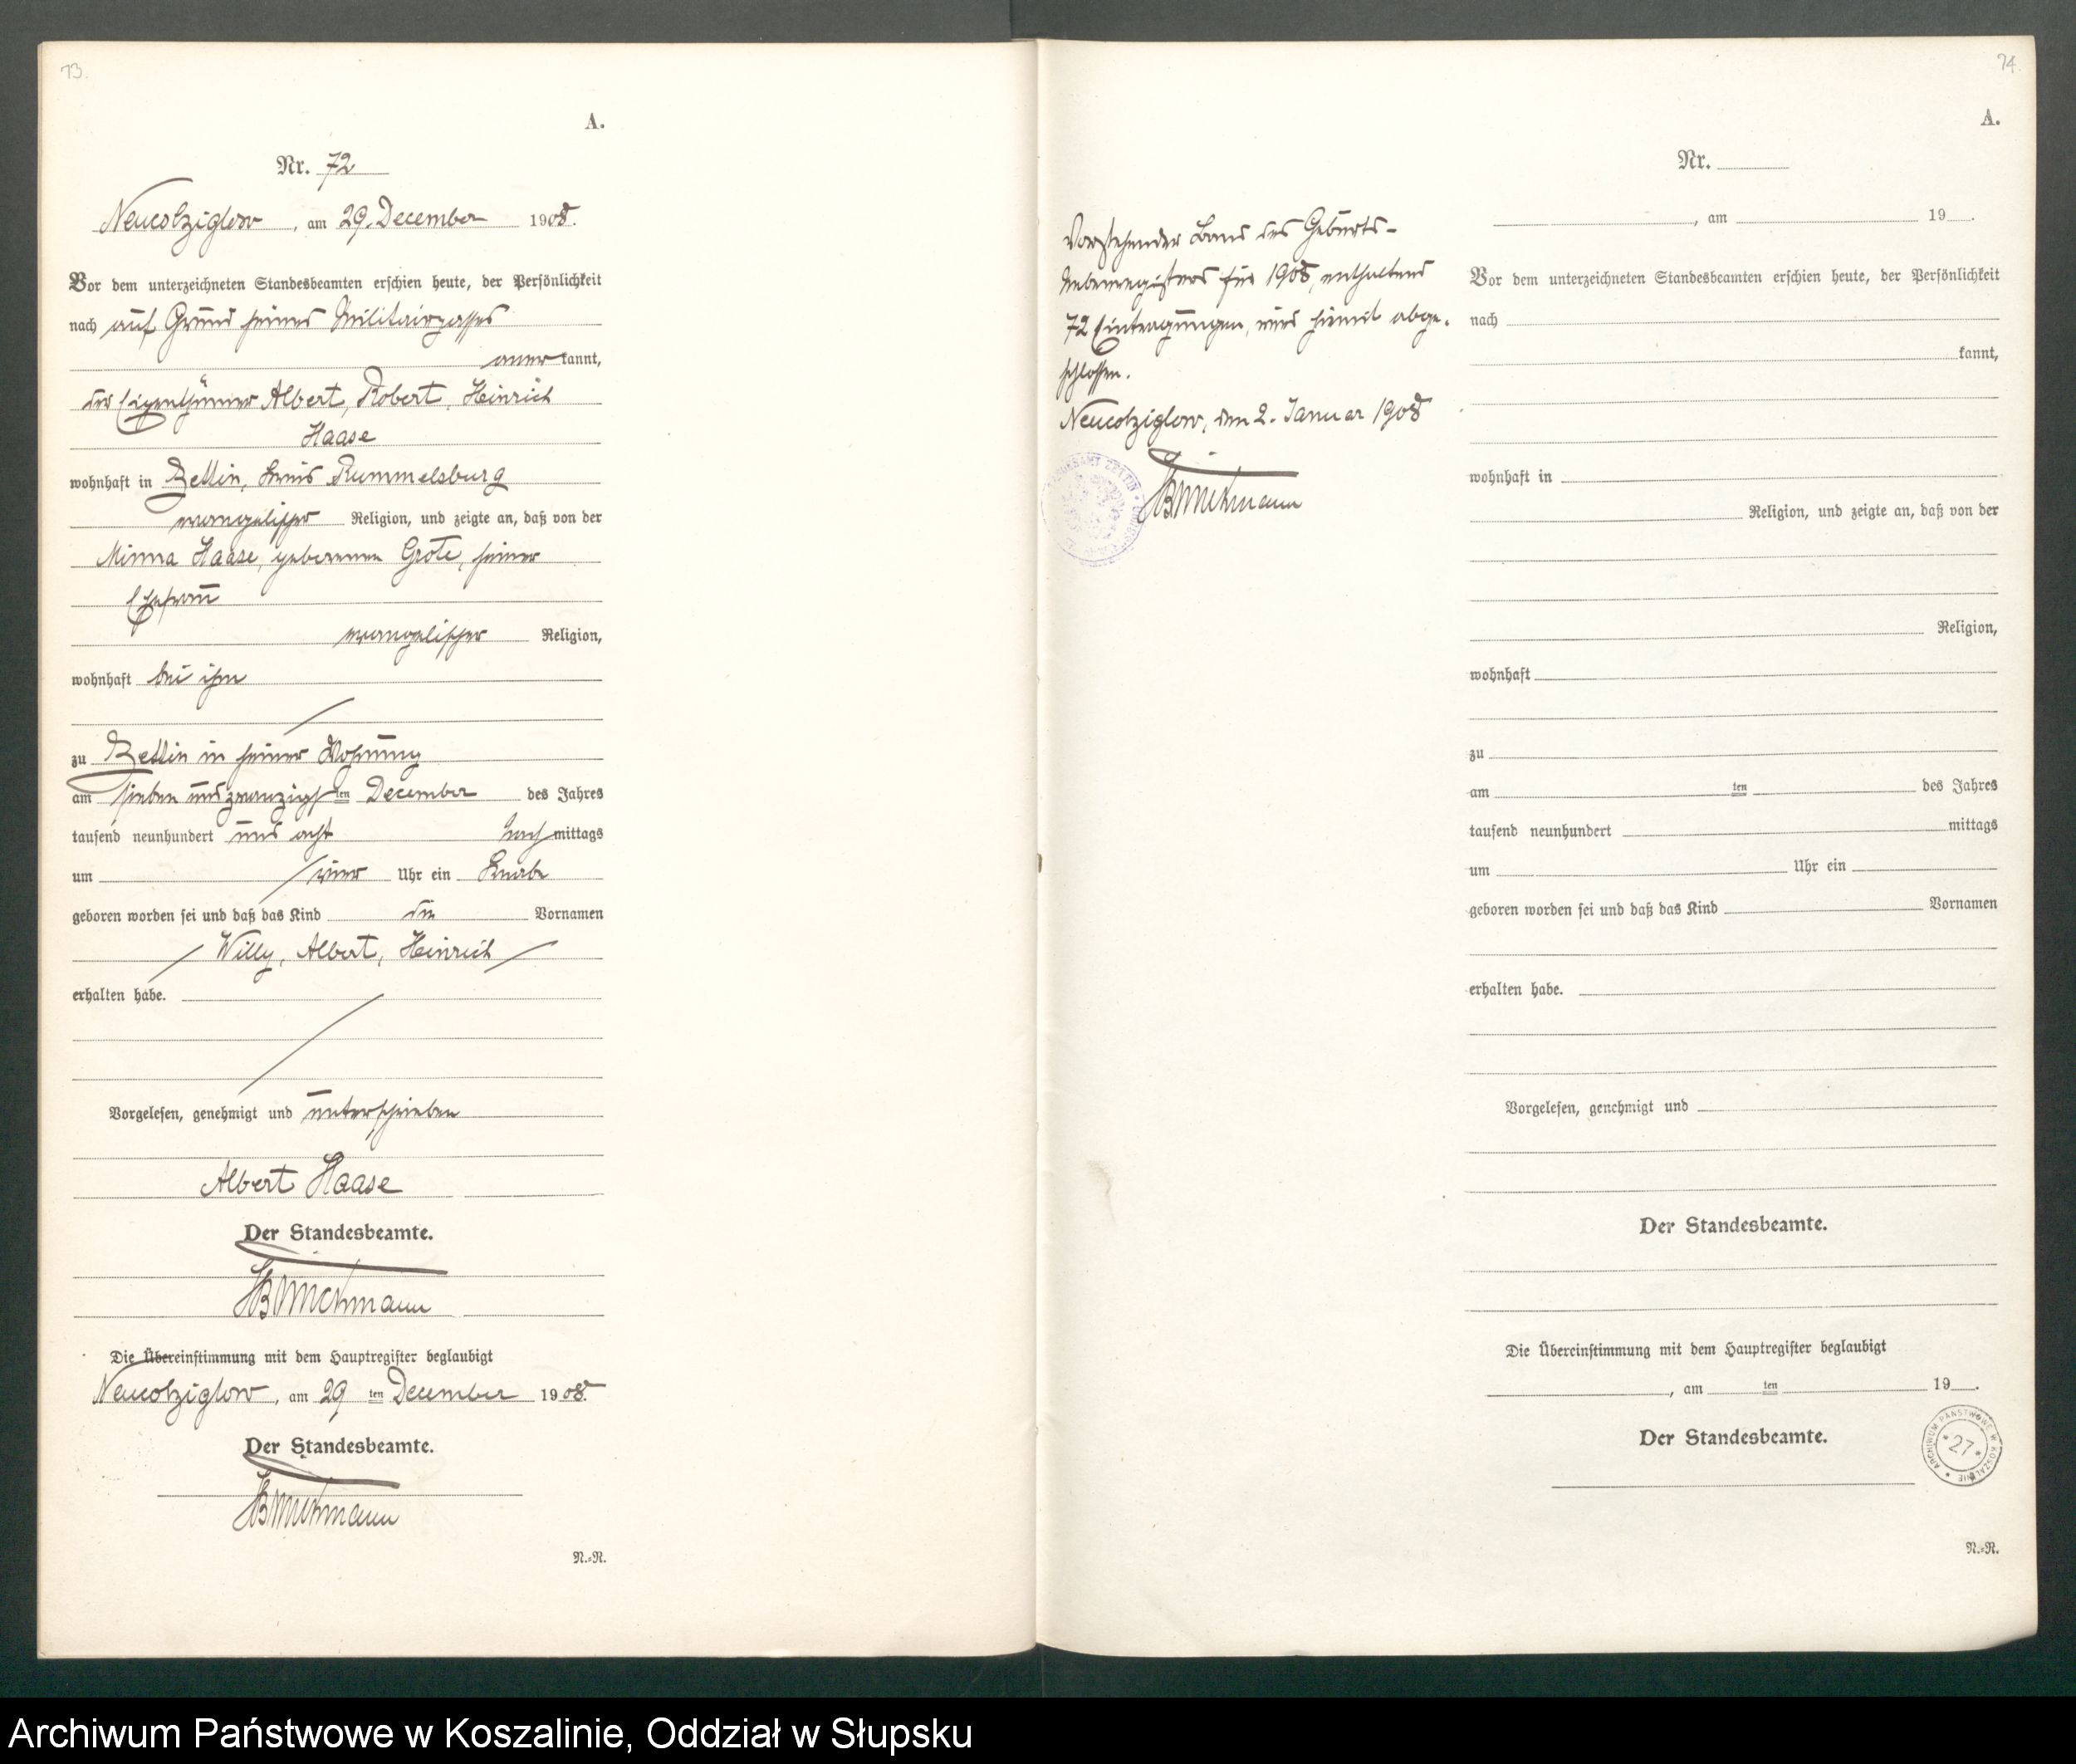 73.
A.
Nr. 72
Neucolziglow, am 29. December 1908.
Vor dem unterzeichneten Standesbeamten erschien heute, der Persönlichkeit
nach auf Grund seines Militairpasses
anerkannt,
der Eigenthümer Albert, Robert, Heinrich
Haase
wohnhaft in Zettin, Kreis Rummelsburg
evangelischer Religion, und zeigte an, daß von der
Minna Haase, geborenen Grote, seiner
Ehefrau
evangelischer Religion,
wohnhaft bei ihm
zu Zettin in seiner Wohnung
am sieben und zwanzigsten December des Jahres
tausend neunhundert und acht Nachmittags
um vier Uhr ein Knabe
geboren worden sei und daß das Kind die Vornamen
Willy, Albert, Heinrich
erhalten habe.
Vorgelesen, genehmigt und unterschrieben
Albert Haase
Der Standesbeamte.
Die Übereinstimmung mit dem Hauptregister beglaubigt
Neucolziglow, am 29 ten December 1908.
Der Standesbeamte.
N.=N.
74.
A.
Vorstehender Band des Geburts-
Nebenregisters für 1908, enthaltend
72 Eintragungen, wird hiermit abge-
schlossen.
Neucolziglow, den 2. Januar 1908
Nr.
, am 19 .
Vor dem unterzeichneten Standesbeamten erschien heute, der Persönlichkeit
nach
kannt,
wohnhaft in
Religion, und zeigte an, daß von der
Religion,
wohnhaft
zu
am ten des Jahres
tausend neunhundert mittags
um Uhr ein
geboren worden sei und daß das Kind Vornamen
erhalten habe.
Vorgelesen, genehmigt und
Der Standesbeamte.
Die Übereinstimmung mit dem Hauptregister beglaubigt
, am ten 19 .
Der Standesbeamte.
ARCHIWUM PAŃSTWOWE W KOSZALINIE
*27*
N.=N.
Archiwum Państwowe w Koszalinie, Oddział w Słupsku